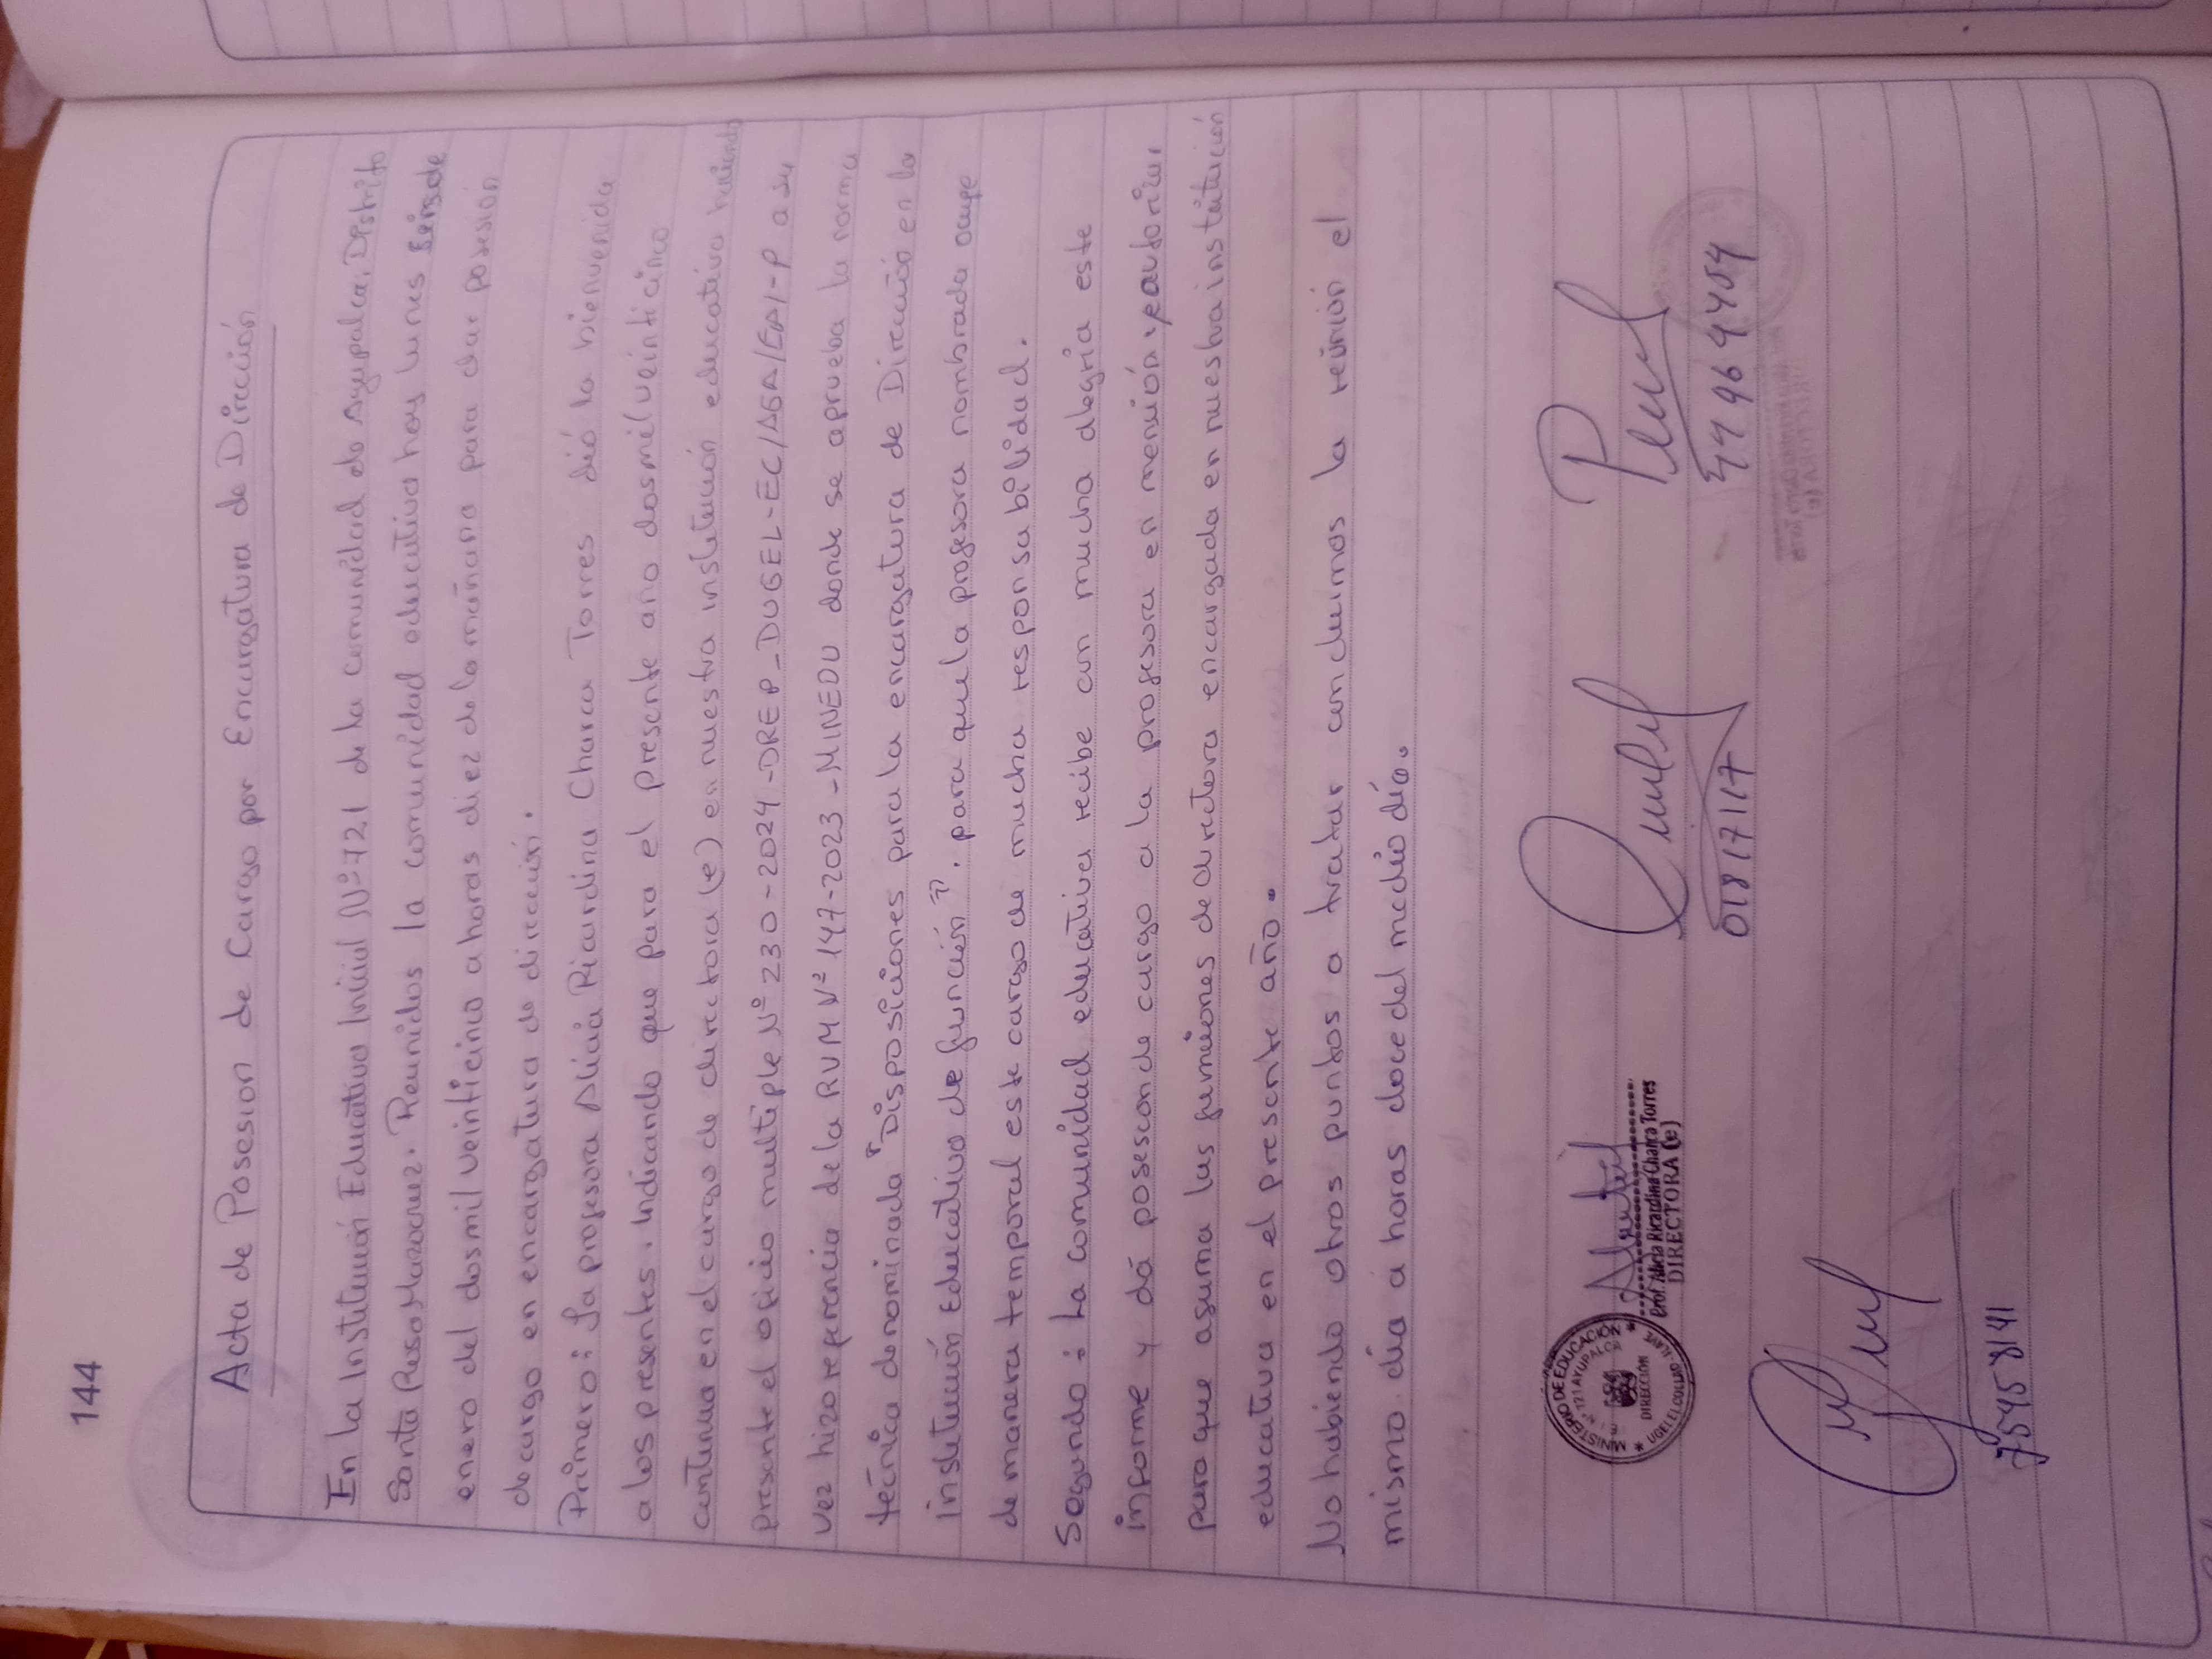 144
Acta de Posesion de Cargo por Encargatura de Dirección
En la Institución Educativa Inicial N°721 de la Comunidad de Ayupalca, Distrito
Santa Rosa Mazocruz. Reunidos la comunidad educativa hoy lunes seis de
enero del dosmil veinticinco a horas diez de la mañana para dar posesion
de cargo en encargatura de dirección.
Primero: La profesora Alicia Ricardina Charca Torres dió la bienvenida
a los presentes. Indicando que para el presente año dosmil veinticinco
continua en el cargo de directora (e) en nuestra institución educativa haciendo
presente el oficio multiple N° 230-2024-DREP_DUGEL-EC/AGA/EBI-P a su
vez hizo referencia de la RVM N° 147-2023-MINEDU donde se aprueba la norma
técnica denominada "Disposiciones para la encargatura de Dirección en la
institución Educativo de función". para que la profesora nombrada ocupe
de manera temporal este cargo de mucha responsabilidad.
Segundo: La comunidad educativa recibe con mucha alegria este
informe y dá posesion de cargo a la profesora en mención y autoriza,
para que asuma las funciones de directora encargada en nuestra institución
educativa en el presente año.
No habiendo otros puntos a tratar concluimos la reunión el
mismo día a horas doce del medio día.
MINISTERIO DE EDUCACIÓN
N° 721 AYUPALCA
DIRECCIÓN
UGEL EL COLLAO - ILAVE
Prof. Alicia Ricardina Charca Torres
DIRECTORA (e)
01817117
75458141